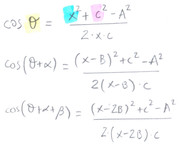 cos θ = x² + c² - A² / 2·x·c
cos(θ+α) = (x-B)² + c² - A² / 2(x-B)·c
cos(θ+α+β) = (x-2B)² + c² - A² / 2(x-2B)·c